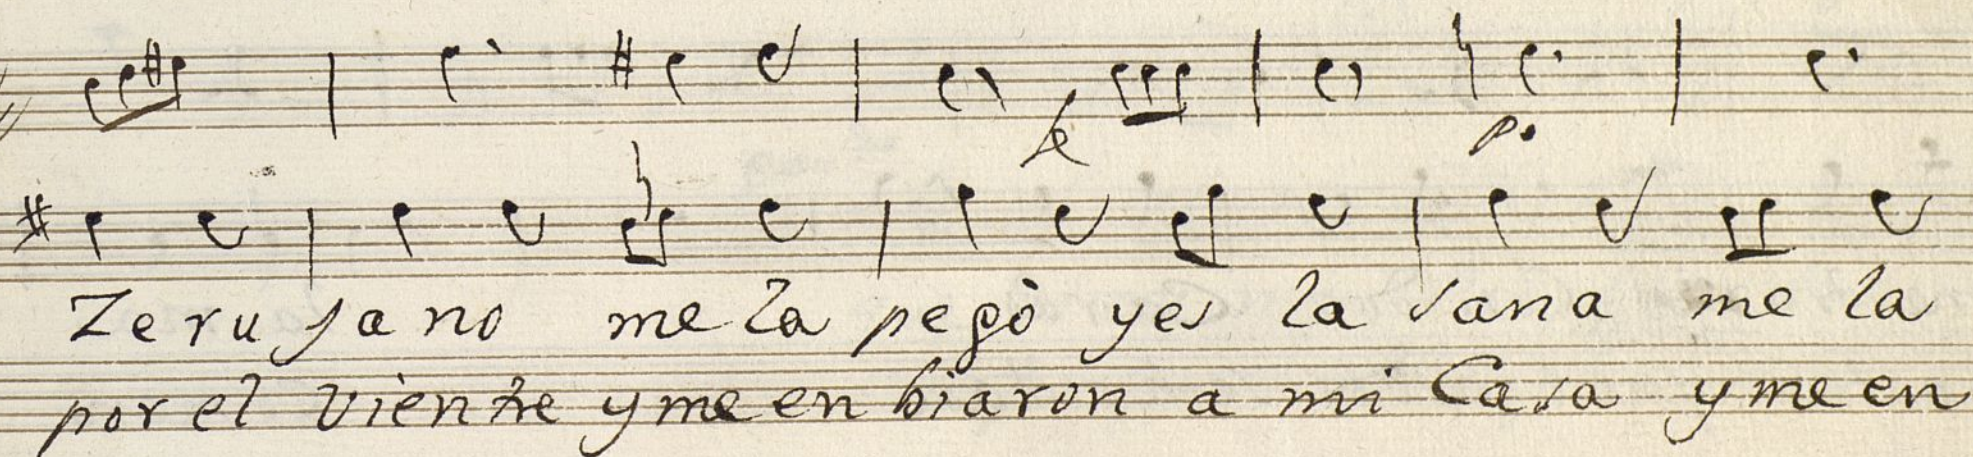 fe
po.
Zeru jano me la pegò yes la sana me la
por el vientre y me en biaron a mi Casa y me en